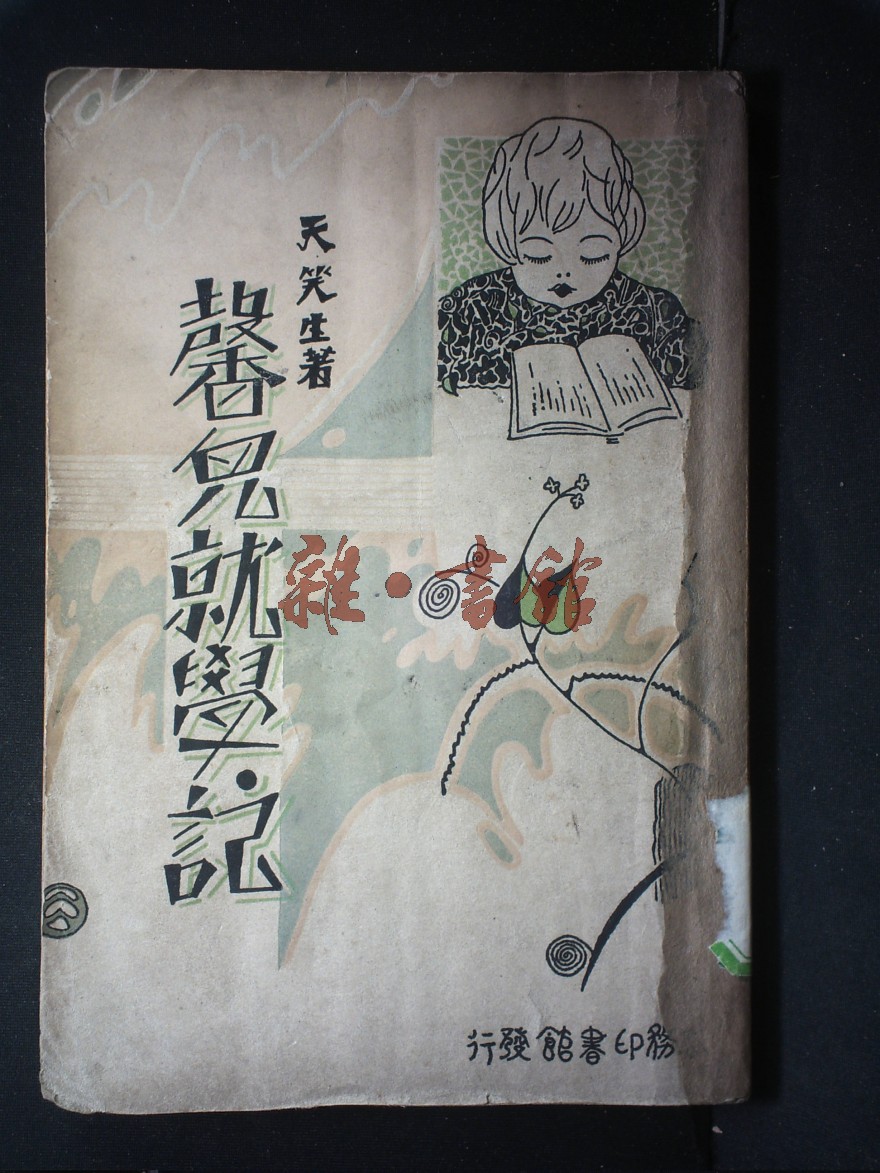 天笑生著
馨兒就學記
務印書館發行
雜·書館